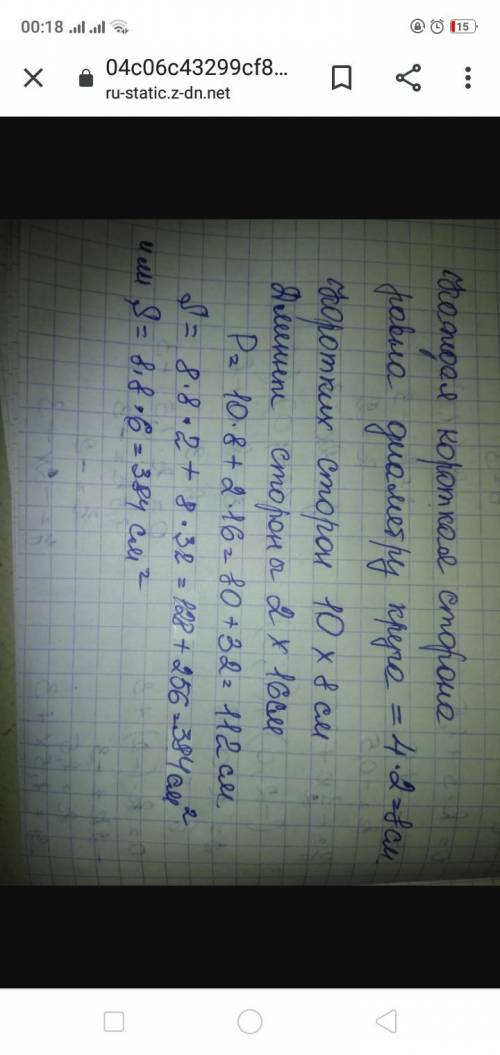 00:18
15
04c06c43299cf8...
ru-static.z-dn.net
Каждая короткая сторона
равна диаметру круга = 4·2=8см
Коротких сторон 10 х 8 см
Длинные стороны 2 х 16см
P= 10·8 + 2·16= 80 + 32= 112 см
S= 8·8·2 + 8·32 = 128 + 256=384см²
или S= 8·8·6=384 см²